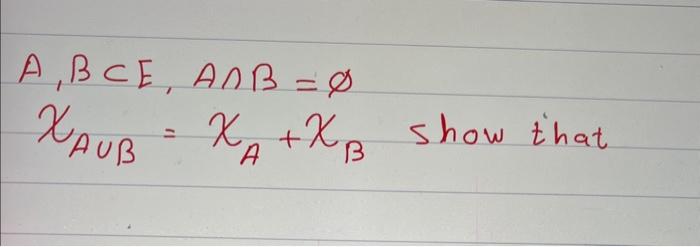 A, B ⊂ E, A ∩ B = ∅
χ_{A∪B} = χ_A + χ_B show that